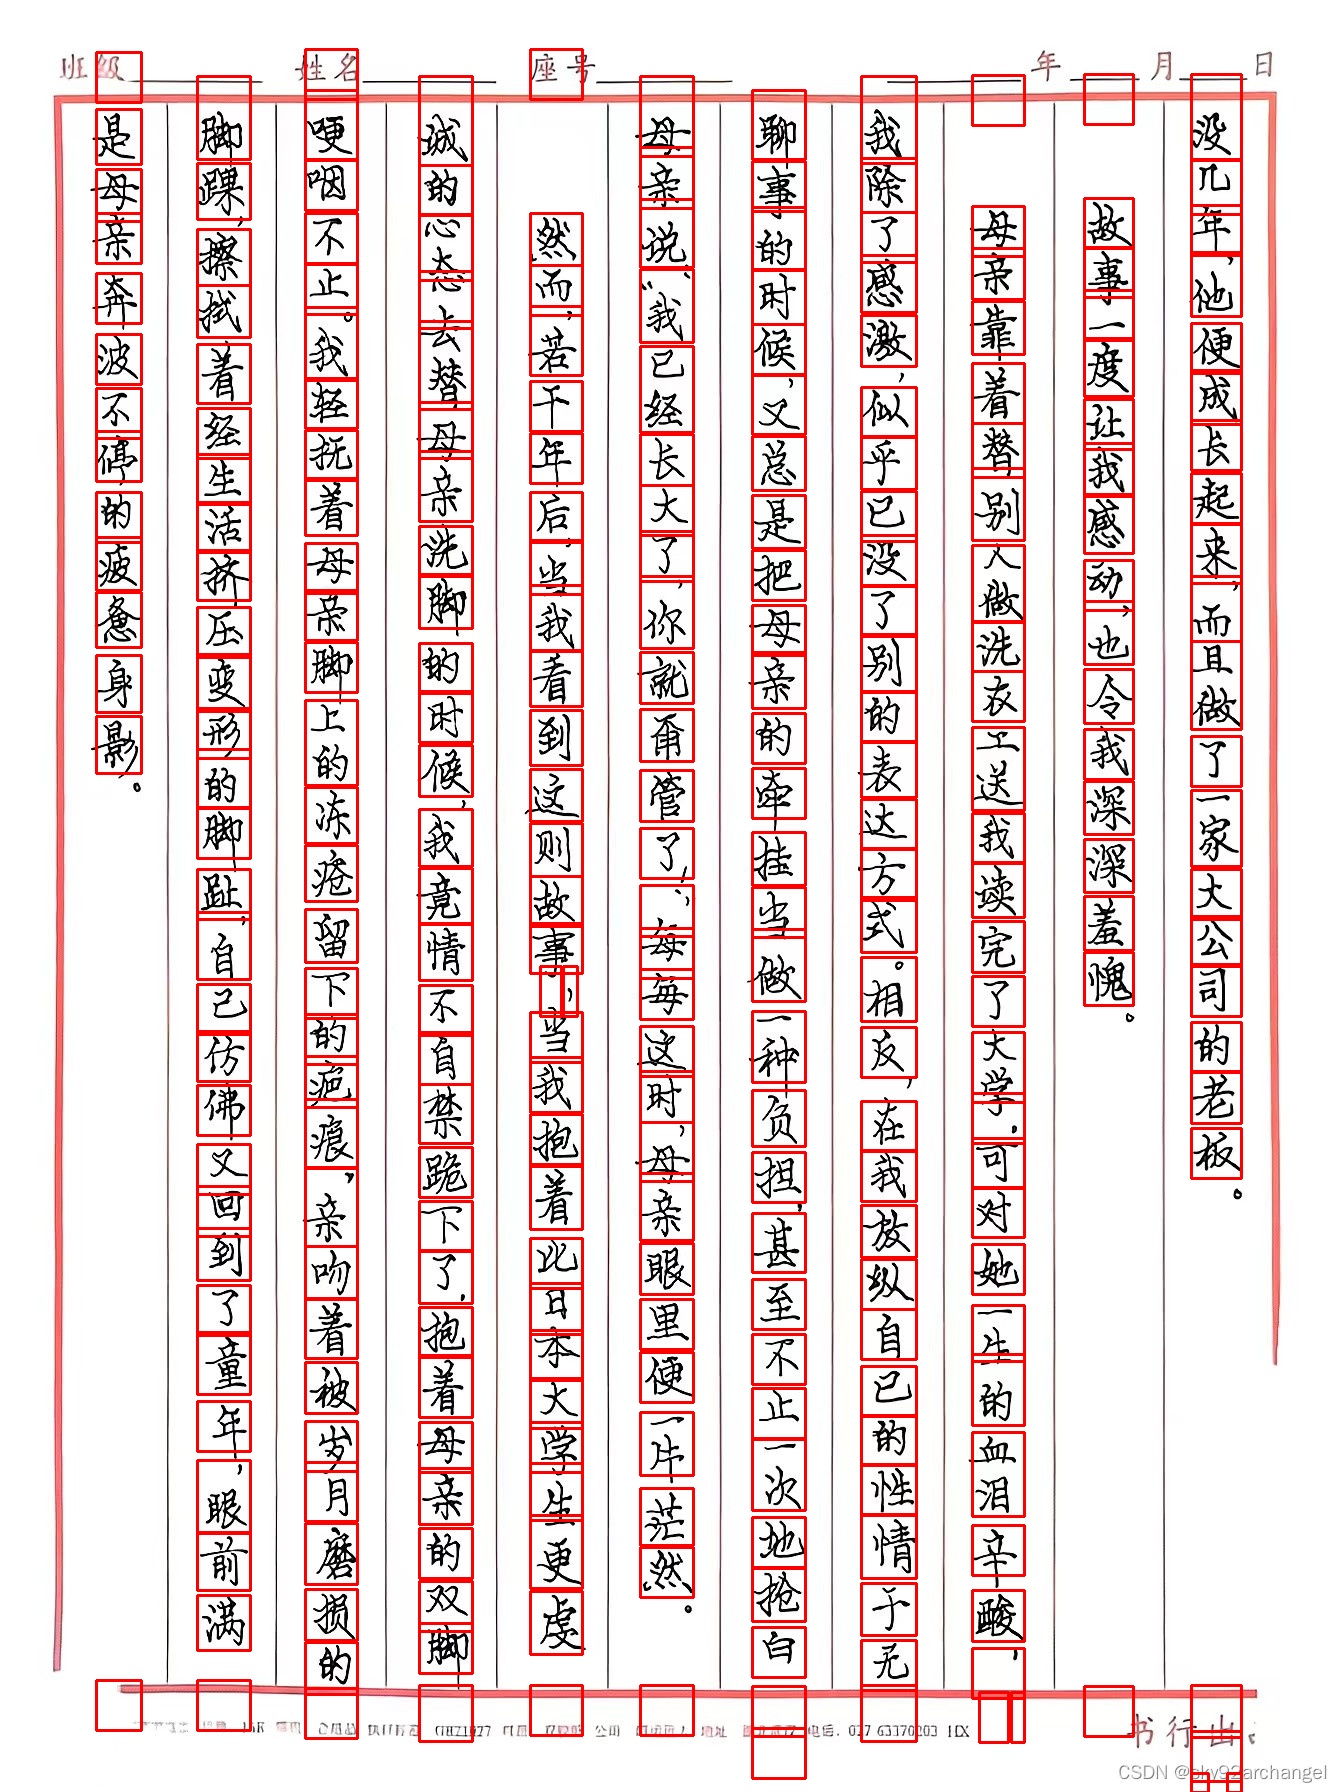 班级 姓名 座号 年 月 日
没几年,他便成长起来,而且做了一家大公司的老板。
故事一度让我感动,也令我深深羞愧。
母亲靠着替别人做洗衣工送我读完了大学,可对她一生的血泪辛酸,
我除了感激,似乎已没了别的表达方式。相反,在我放纵自己的性情于无
聊事的时候,又总是把母亲的牵挂当做一种负担,甚至不止一次地抢白
母亲说:“我已经长大了,你就甭管了!”每每这时,母亲眼里便一片茫然。
然而,若干年后,当我看到这则故事,当我抱着比日本大学生更虔
诚的心态去替母亲洗脚的时候,我竟情不自禁跪下了,抱着母亲的双脚
哽咽不止。我轻抚着母亲脚上的冻疮留下的疤痕,亲吻着被岁月磨损的
脚踝,擦拭着经生活挤压变形的脚趾,自己仿佛又回到了童年,眼前满
是母亲奔波不停的疲惫身影。
公司 地址 电话: 027 63370203
书行出
CSDN @sky92archangel